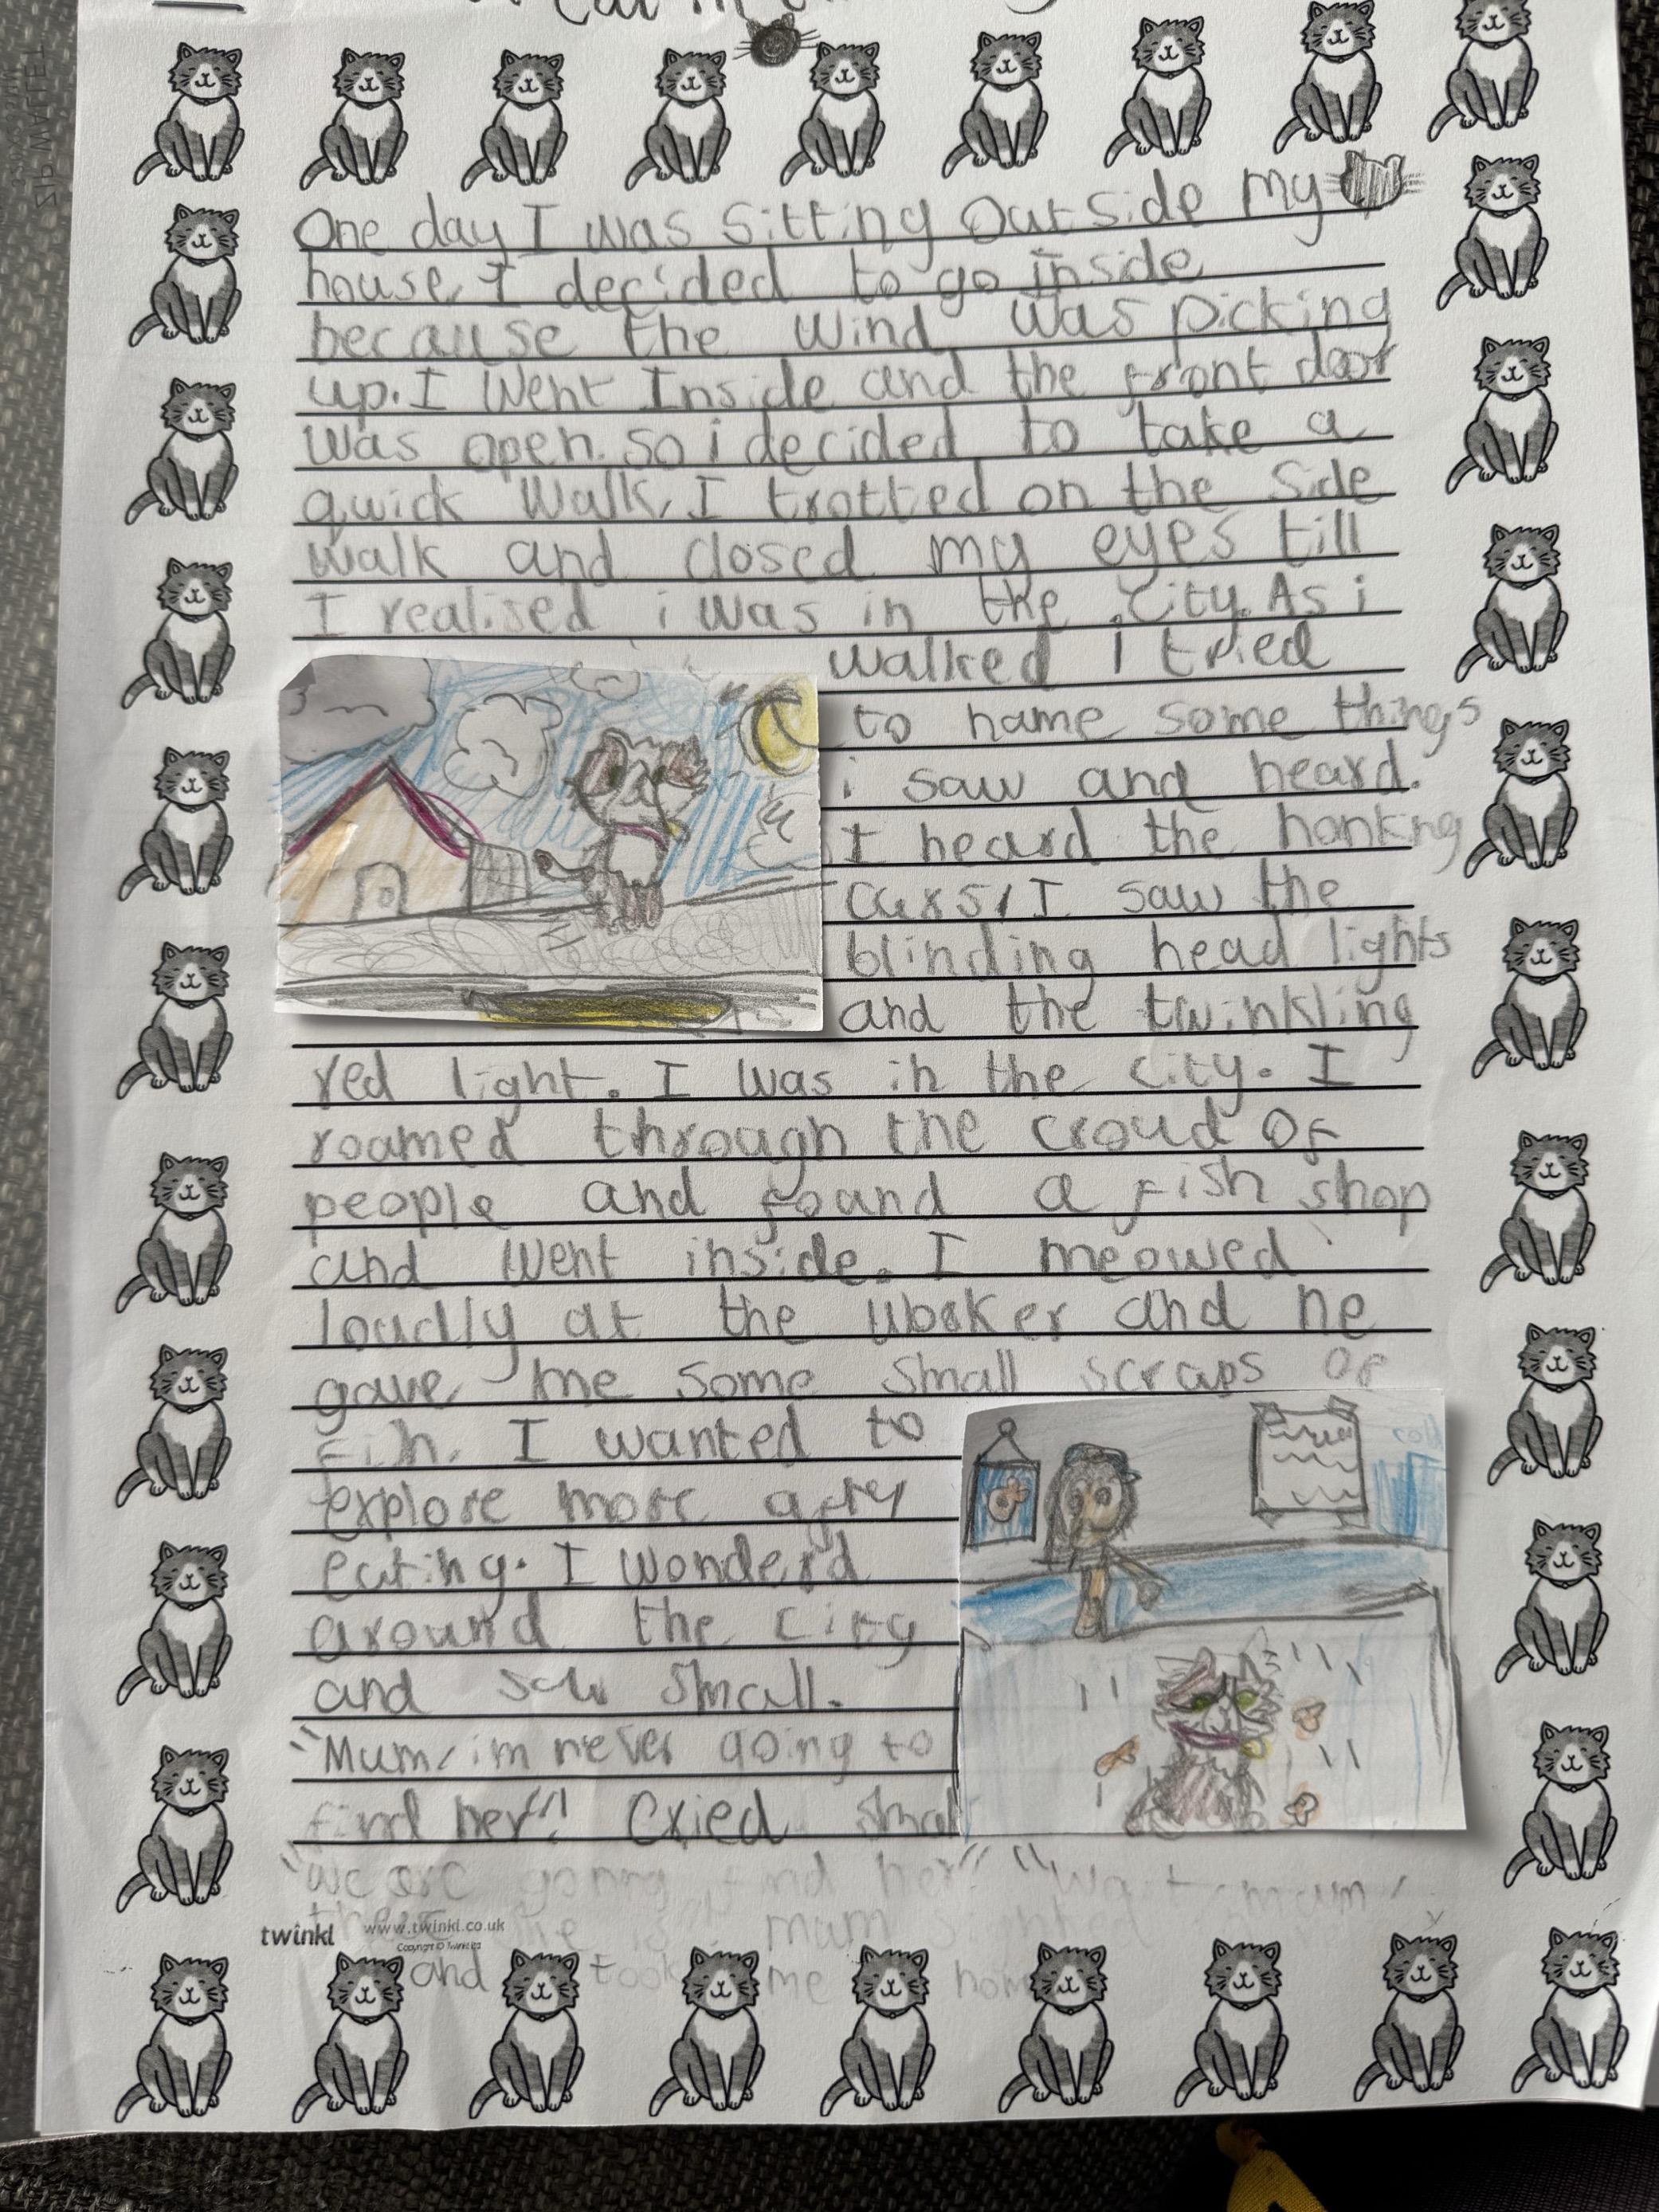 Cat in the
One day I was sitting outside my
house, I decided to go inside
because the wind was picking
up. I went Inside and the front door
was open. so i decided to take a
quick walk, I trotted on the side
walk and closed my eyes till
I realised i was in the city. As i
walked I tried
to name some things
i saw and heard.
I heard the honking
cars, I saw the
blinding head lights
and the twinkling
red light. I was in the city. I
roamed through the croud of
people and found a fish shop
and went inside. I meowed
loudly at the and he
gave me some small scraps of
fih. I wanted to
explore more
eating. I wonderd
around the city
and saw small.
"Mum, im never going to
find her"! Cried small
"We are gonna find her" "Wait mum,
she is mum
and took me home
twinkl www.twinkl.co.uk
ZIP WALLET